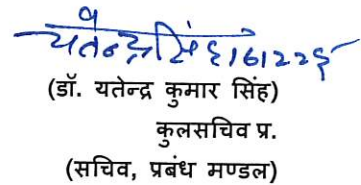 यतेन्द्र सिंह
(डॉ. यतेन्द्र कुमार सिंह)
कुलसचिव प्र.
(सचिव, प्रबंध मण्डल)